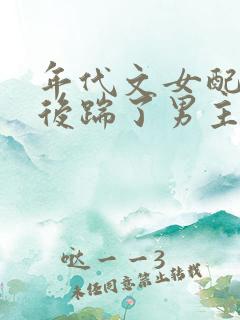 年代文女配
後踹了男主
哒一一3
未经同意禁止转载